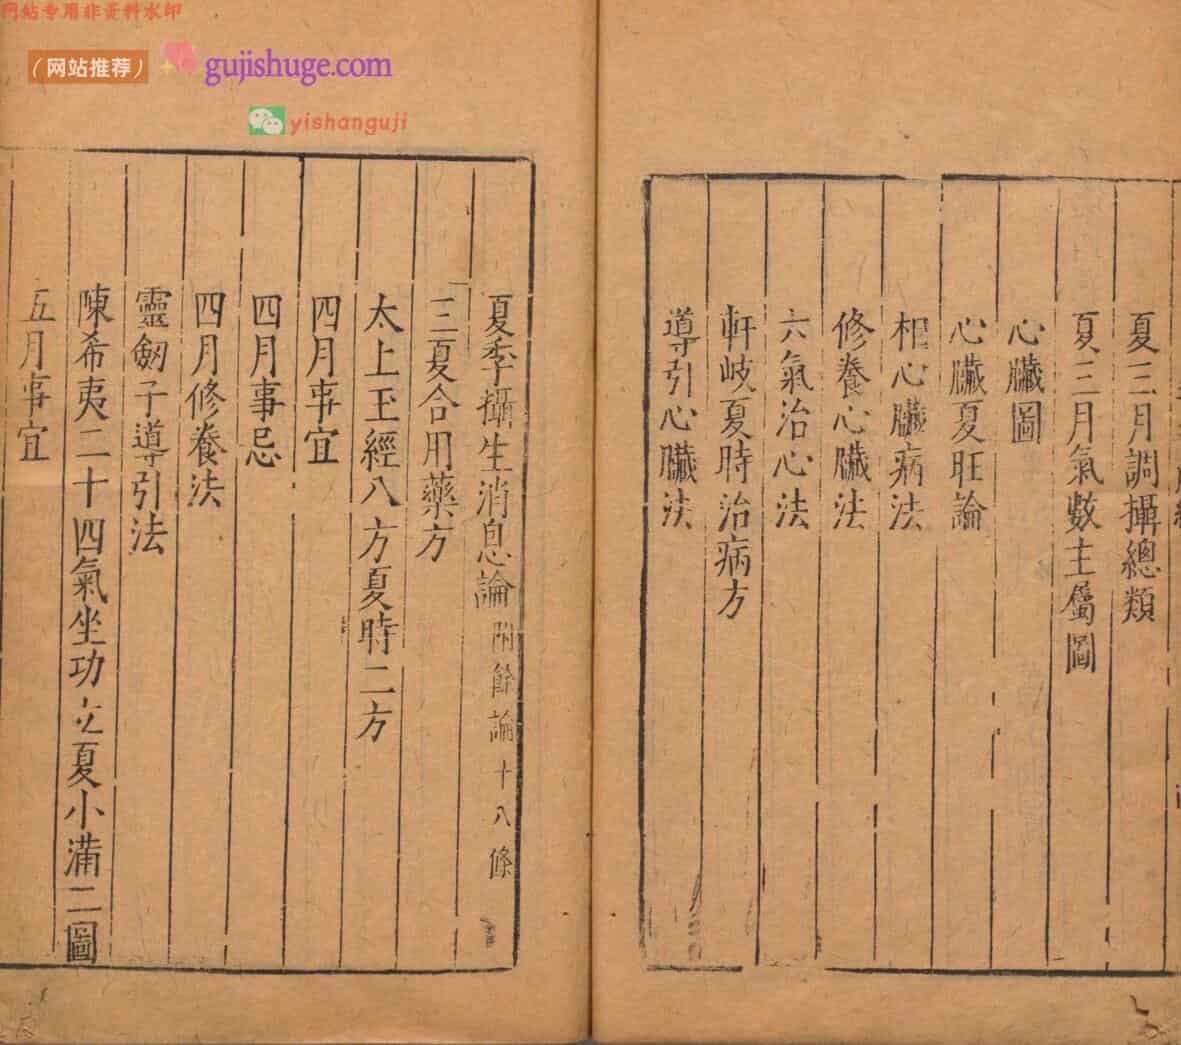 网站专用非资料水印
（网站推荐）
gujishuge.com
yishanguji
夏三月調攝總類
夏三月氣數主屬圖
心臟圖
心臟夏旺論
相心臟病法
修養心臟法
六氣治心法
軒岐夏時治病方
導引心臟法
夏季攝生消息論 附餘論十八條
三夏合用藥方
太上玉經八方夏時二方
四月事宜
四月事忌
四月修養法
靈劒子導引法
陳希夷二十四氣坐功立夏小滿二圖
五月事宜